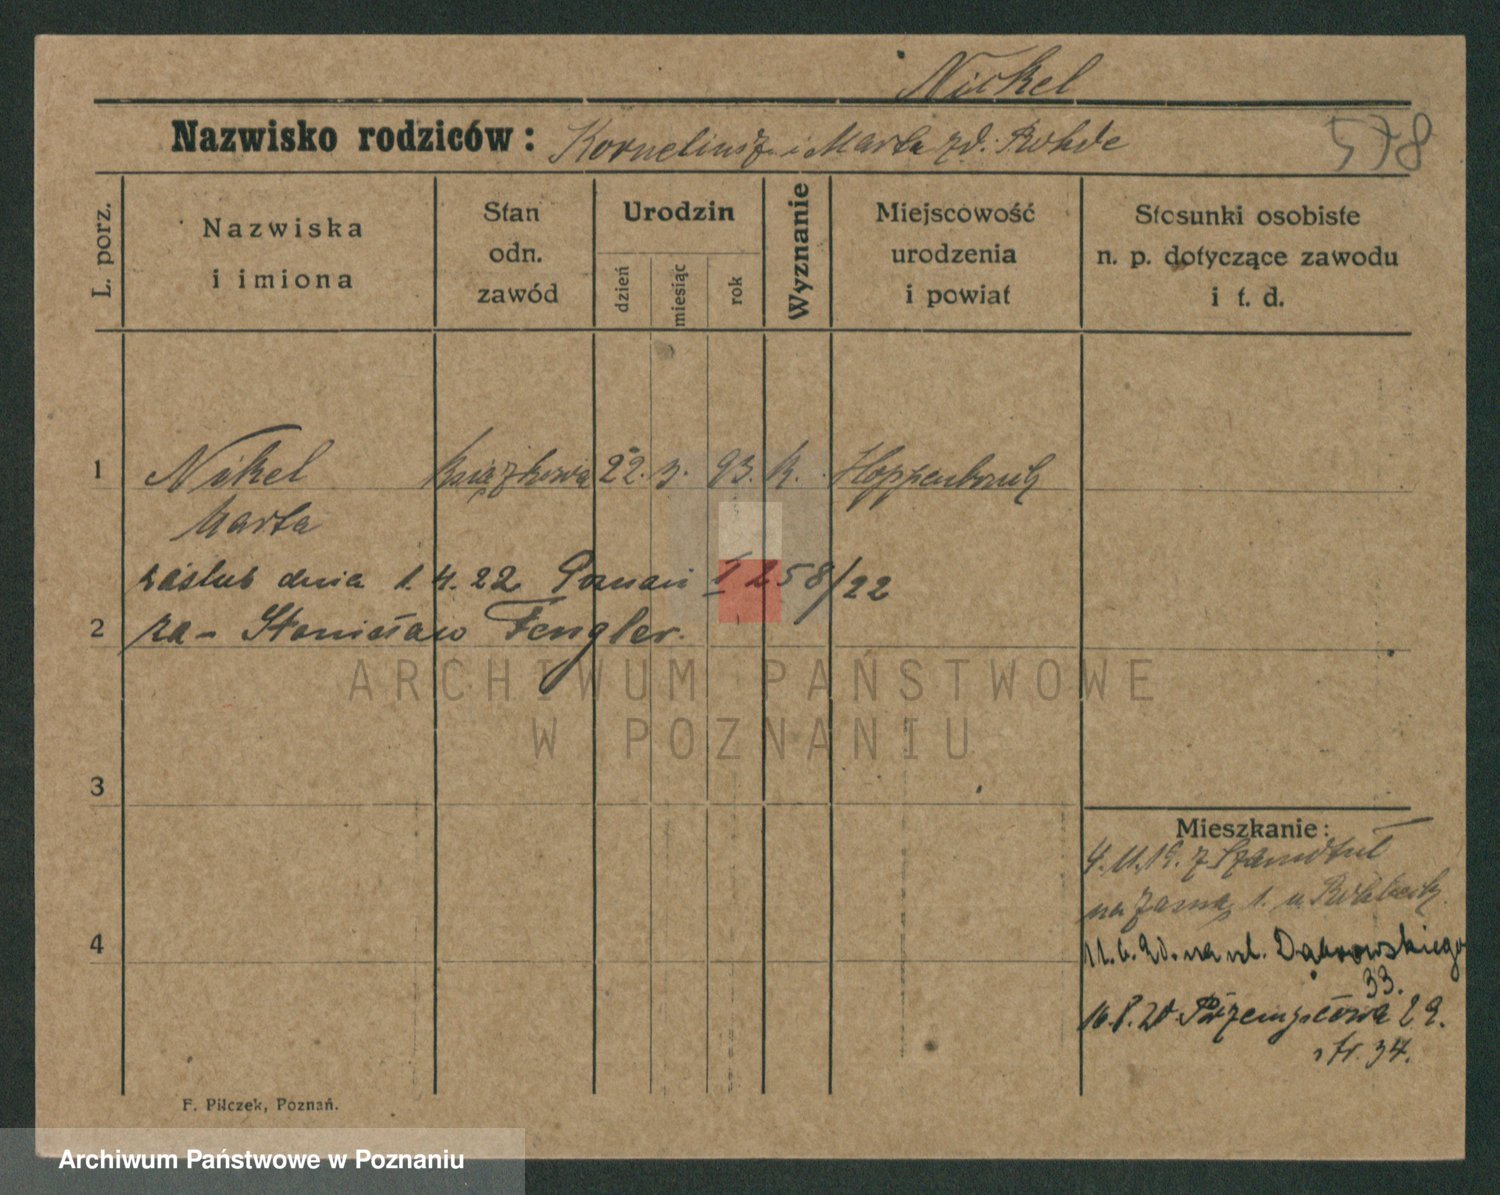 Nickel
Nazwisko rodziców: Korneliusz i Marta zd. Rohde
578
L. porz.
Nazwiska i imiona
Stan odn. zawód
Urodzin
dzień
miesiąc
rok
Wyznanie
Miejscowość urodzenia i powiat
Stosunki osobiste n. p. dotyczące zawodu i t. d.
1 Nikel 22. 3. 93. K.
Marta
zaślub dnia 1.4.22 Poznań I 258/22
2 za - Stanisław Fengler.
ARCHIWUM PAŃSTWOWE
W POZNANIU
3
Mieszkanie:
4.11.19. z Szamotuł
na Jasna 1. u
4
11.6.20. na ul. Dąbrowskiego
33.
16.8.20 Przemysłowa 29.
34.
F. Pilczek, Poznań.
Archiwum Państwowe w Poznaniu